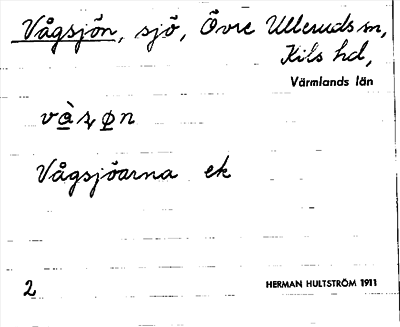 Vågsjön, sjö, Övre Ulleruds sn,
Kils hd,
Värmlands län
Vågsjöarna ek
2
HERMAN HULTSTRÖM 1911